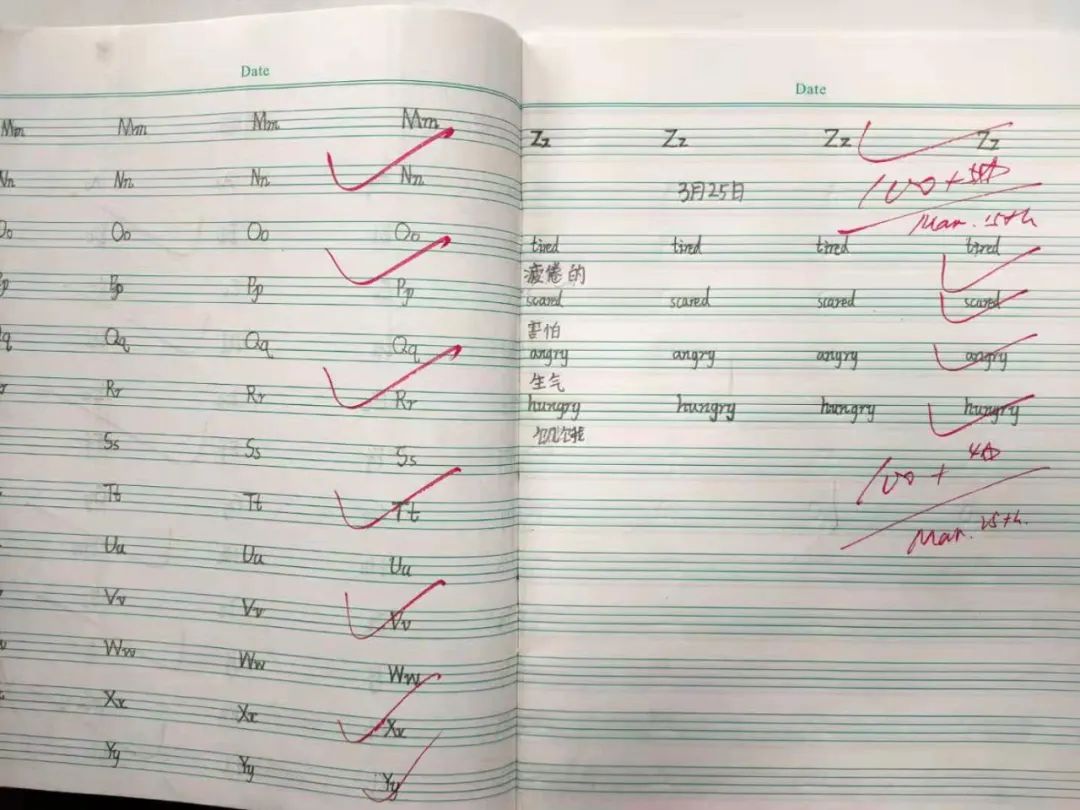 Date
Mm Mm Mm Mm
Nn Nn Nn Nn
Oo Oo Oo Oo
Pp Pp Pp Pp
Qq Qq Qq Qq
Rr Rr Rr
Ss Ss Ss
Tt Tt Tt
Uu Uu Uu
Vv Vv Vv
Ww Ww Ww
Xx Xx Xx
Yy Yy Yy
Date
Zz Zz Zz Zz
100+
3月25日
Mar. 15th
tired tired tired tired
疲倦的
scared scared scared scared
害怕
angry angry angry angry
生气
hungry hungry hungry hungry
饥饿
100+
Mar. 25th.